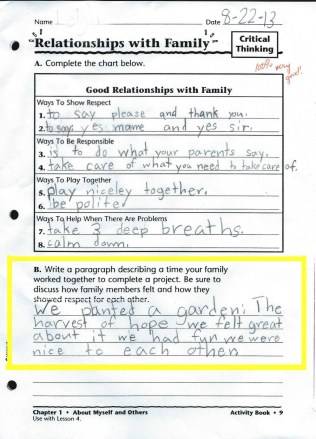 Name
Date 8-22-13
Relationships with Family
Critical Thinking
A. Complete the chart below.
100% very good!
Good Relationships with Family
Ways To Show Respect
1. to say please and thank you.
2. to say yes mame and yes sir.
Ways To Be Responsible
3. is to do what your parents say.
4. take care of what you need to take care of.
Ways To Play Together
5. play niceley together.
6. be polite
Ways To Help When There Are Problems
7. take 3 deep breaths.
8. calm down.
B. Write a paragraph describing a time your family
worked together to complete a project. Be sure to
discuss how family members felt and how they
showed respect for each other.
We planted a garden; The
harvest of hope we felt great
about it we had fun we were
nice to each other
Chapter 1 • About Myself and Others
Activity Book • 9
Use with Lesson 4.